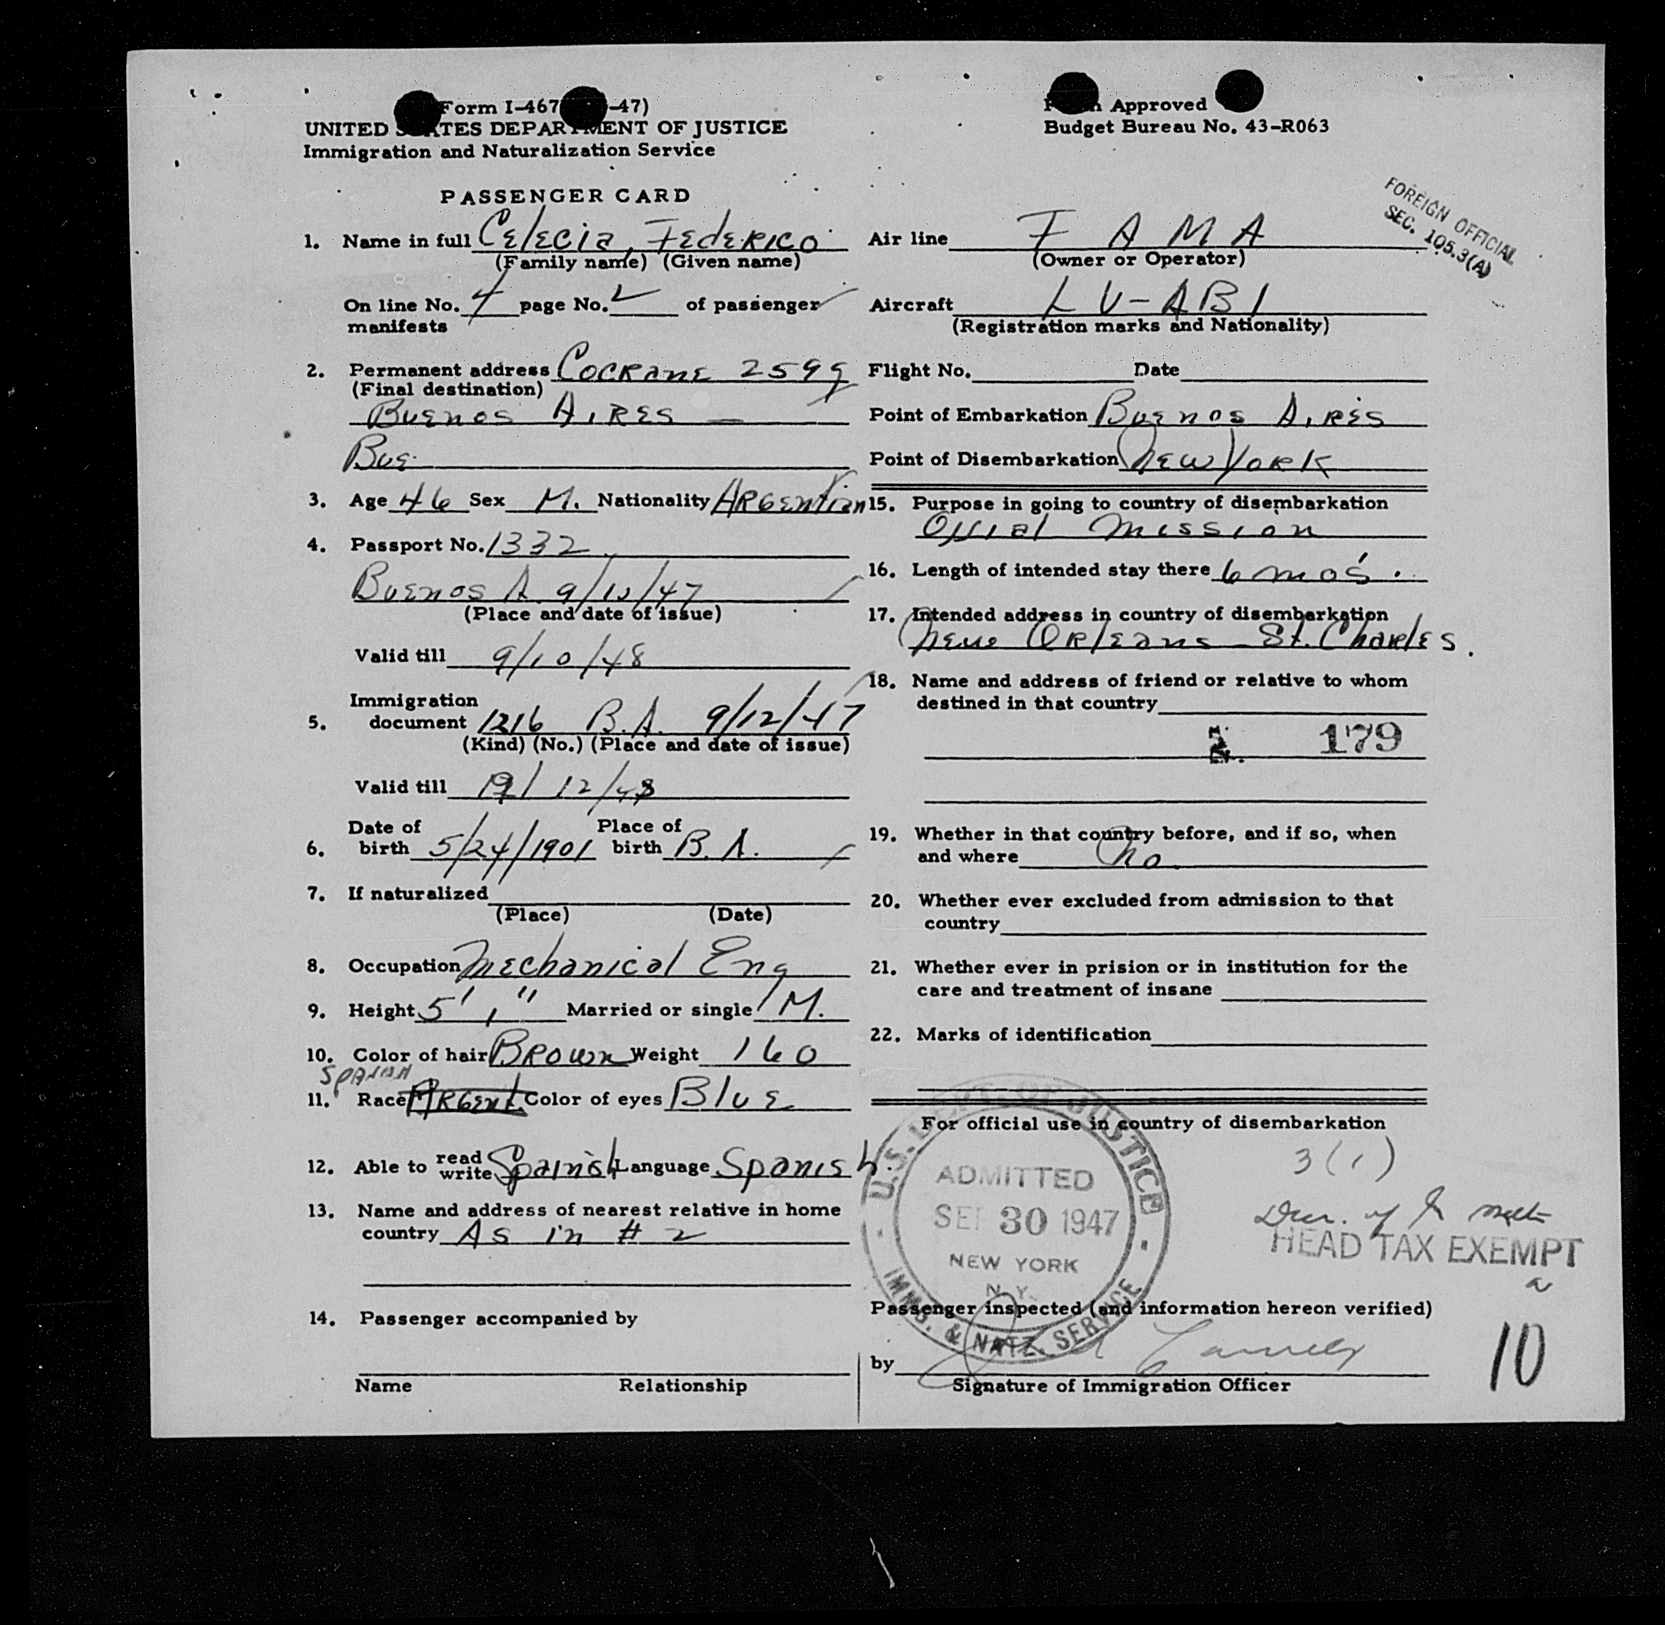 Form I-467 -47)
UNITED STATES DEPARTMENT OF JUSTICE
Immigration and Naturalization Service
Approved
Budget Bureau No. 43-R063
PASSENGER CARD
FOREIGN OFFICIAL
SEC. 105.3(A)
1. Name in full Celecia, Federico
(Family name) (Given name)
On line No. 4 page No. 2 of passenger
manifests
2. Permanent address Cocrane 2599
(Final destination)
Buenos Aires
Bue
3. Age 46 Sex M. Nationality Argentian
4. Passport No. 1332
Buenos A 9/10/47
(Place and date of issue)
Valid till 9/10/48
5. Immigration
document 1216 B.A. 9/12/47
(Kind) (No.) (Place and date of issue)
Valid till 9/12/48
6. Date of birth 5/24/1901 Place of birth B.A.
7. If naturalized
(Place) (Date)
8. Occupation Mechanical Eng
9. Height 5' 1" Married or single M.
10. Color of hair Brown Weight 160
Spanish
11. Race Argent. Color of eyes Blue
12. Able to read write Spanish Language Spanish.
13. Name and address of nearest relative in home
country As in # 2
14. Passenger accompanied by
Name Relationship
Air line F A M A
(Owner or Operator)
Aircraft LV-ABI
(Registration marks and Nationality)
Flight No. Date
Point of Embarkation Buenos Aires
Point of Disembarkation New York
15. Purpose in going to country of disembarkation
Offial Mission
16. Length of intended stay there 6 mos.
17. Intended address in country of disembarkation
New Orleans St. Charles.
18. Name and address of friend or relative to whom
destined in that country
179
19. Whether in that country before, and if so, when
and where No
20. Whether ever excluded from admission to that
country
21. Whether ever in prision or in institution for the
care and treatment of insane
22. Marks of identification
For official use in country of disembarkation
U.S. DEPT. OF JUSTICE
ADMITTED
SEP 30 1947
NEW YORK
N.Y.
IMM. & NATZ. SERVICE
3(1)
HEAD TAX EXEMPT
Passenger inspected (and information hereon verified)
by
Signature of Immigration Officer
10